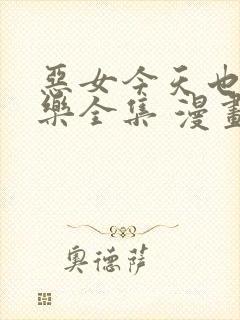 惡女今天也
樂全集 漫畫
奧德薩